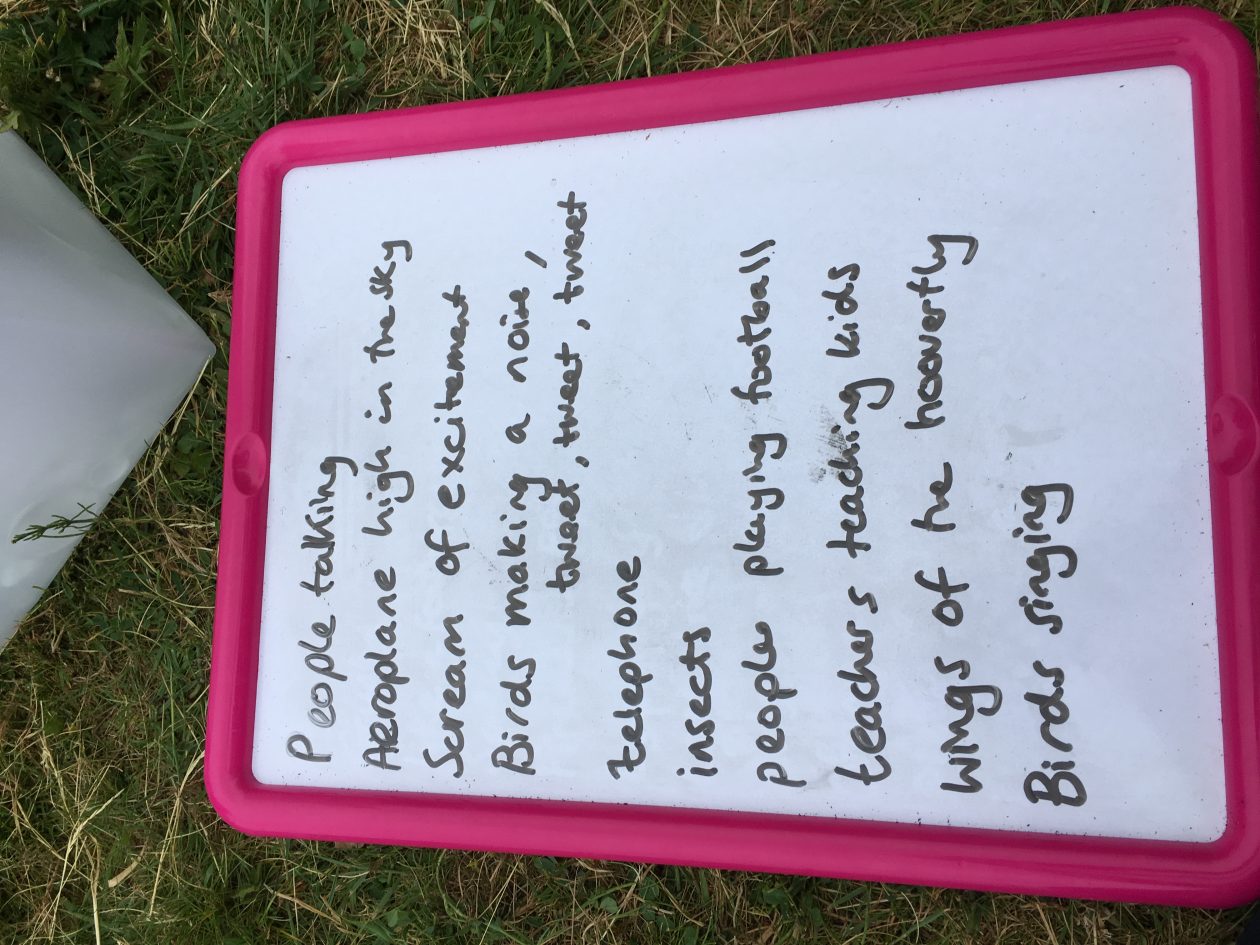 People talking
Aeroplane high in the sky
Scream of excitement
Birds making a noise,
tweet, tweet, tweet, tweet
telephone
insects
people playing football
teachers teaching kids
wings of the hooverfly
Birds singing